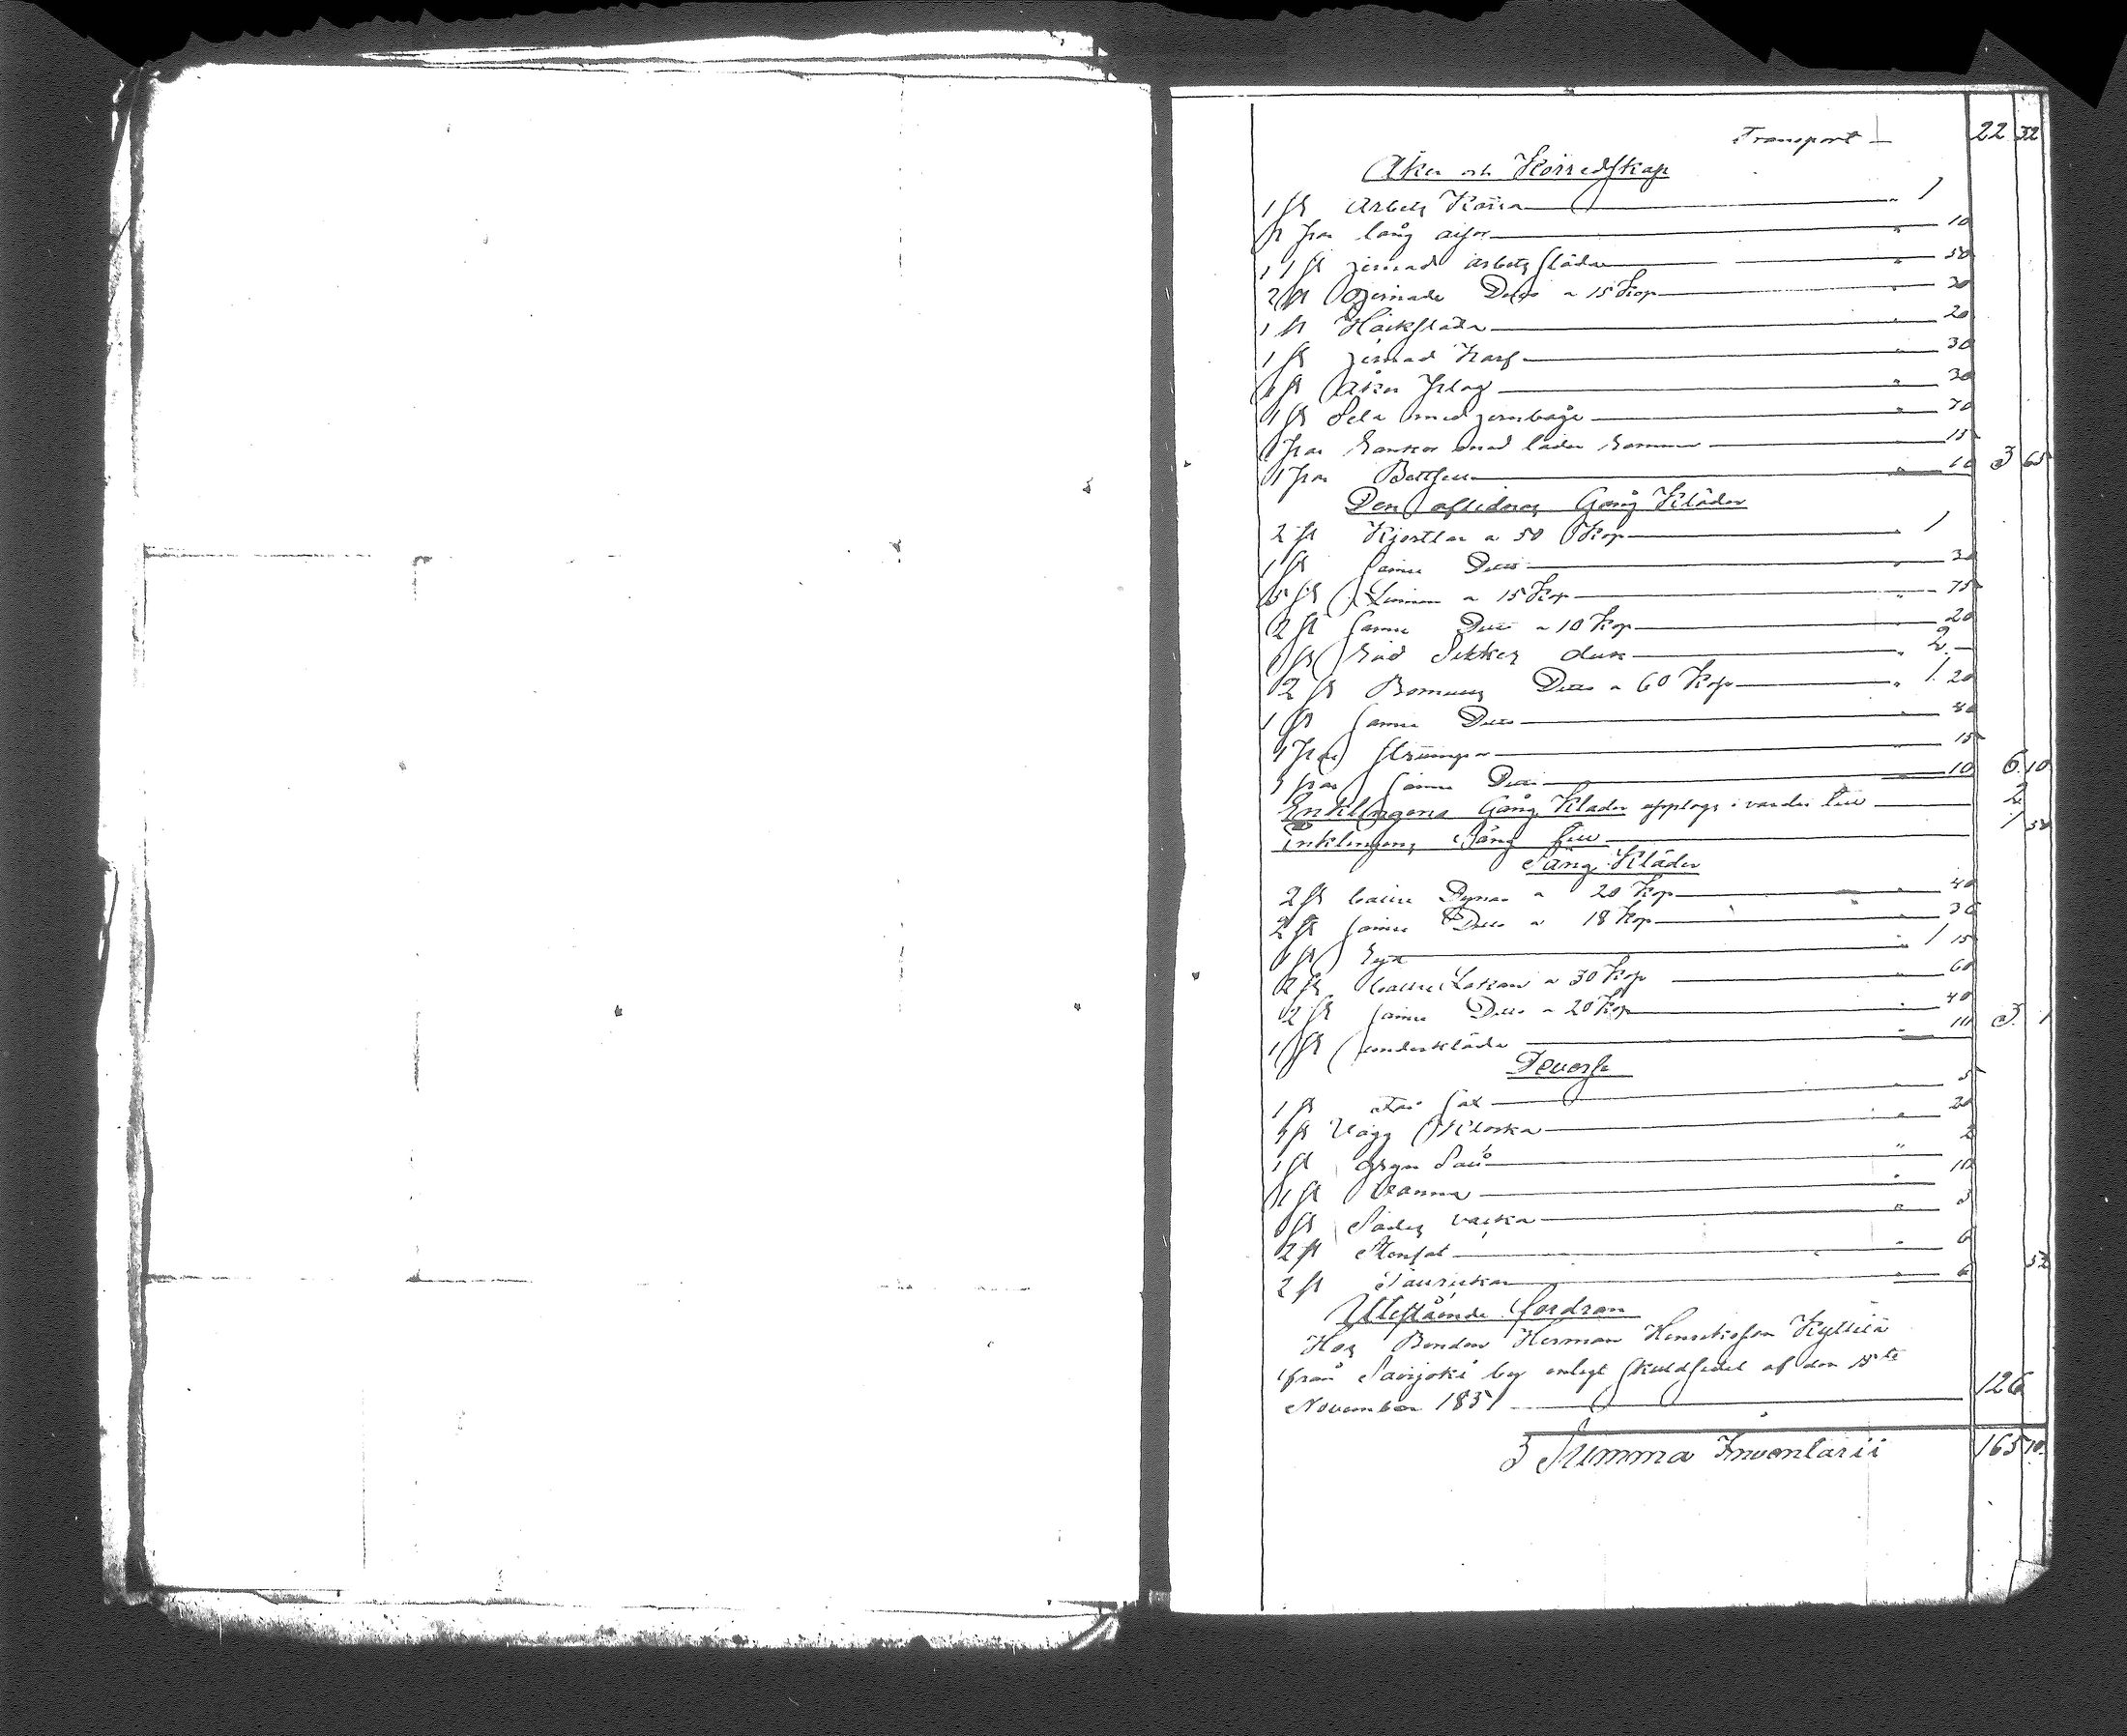 Transport — 22 32
Åker och Körredskap
1 st Arbets Kärra — " 1
1 par lång — " 10
1 st jernad arbets släda — " 50
2 st Ojernade Dito a 15 Kop — " 30
1 st Häcksläda — " 20
1 st jernad Harf — " 30
1 st Åker Plog — " 30
1 st Sela med jernbåge — " 70
1 par med läder — 15
1 par — " 10 3 65
Den aflidnes Gång Kläder
2 st Kjortlar a 50 Kop — " 1
1 st sämre Dito — " 30
5 st Linnen a 15 Kop — " 75
2 st sämre Dito a 10 Kop — 20
1 st röd Silkes duk — " 2 —
2 st Bomuls Dito a 60 Kop — " 1 20
1 st sämre Dito — " 40
1 par strumpor — 15
1 par sämre Dito — 10 6 10
Enklingens Gång Kläder upptogs i värde till — 2
Enklingens Säng — 1 50
Säng Kläder
2 st Dynor a 20 Kop — " 40
2 st sämre Dito a 18 Kop — 36
1 st Rya — " 1 15
2 st Lakan a 30 Kop — " 60
2 st sämre Dito a 20 Kop — " 40
1 st — " 10 3 1
1 st — " 5
1 st Vägg Klocka — " 20
1 st Gryn Såll — " 2
1 st Kanna — " 10
1 st — " 3
2 st Stenfat — " 6
2 st — " 6 52
Utestående fordran
Hos Bonden Herman Henriksson Kylliä
från Savijoki by enligt skuldsedel af den 15te
November 1851 — 126
Summa Inventarii 165 10